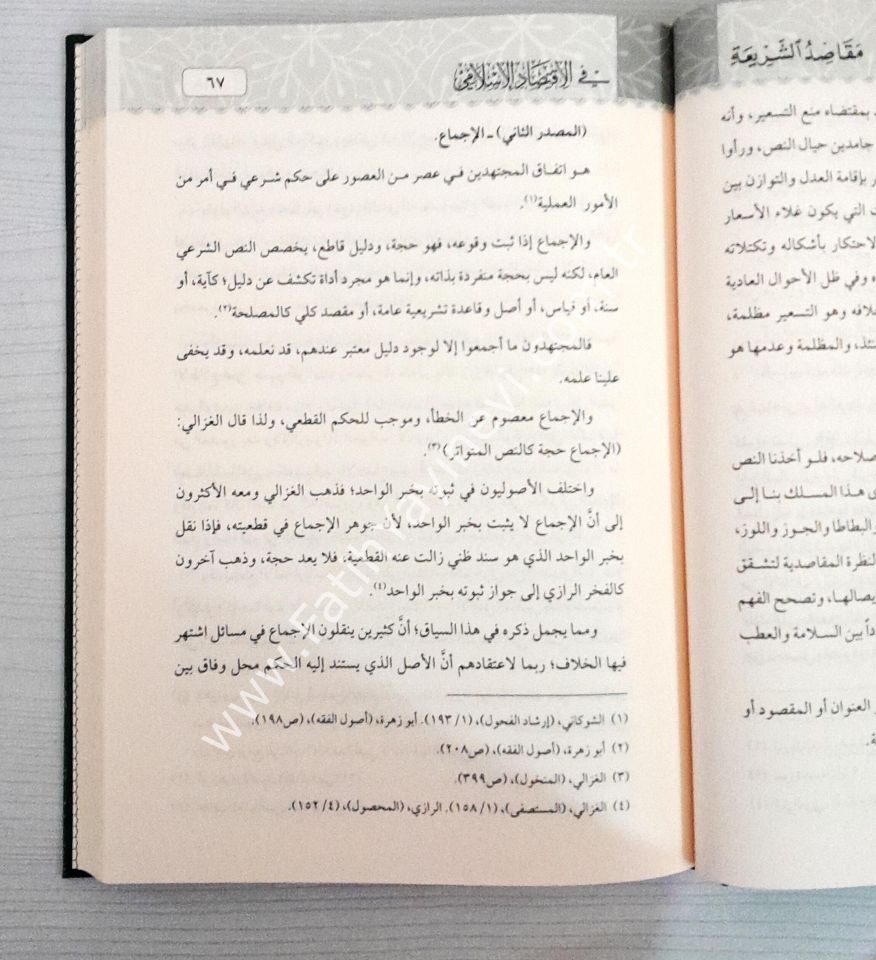 مَقَاصِدُ الشَّرِيعَةِ
بمقتضاه منع التسعير، وأنه
جامدين حيال النص، ورأوا
بإقامة العدل والتوازن بين
التي يكون غلاء الأسعار
الاحتكار بأشكاله وتكتلاته
وفي ظل الأحوال العادية
وهو التسعير مظلمة،
والمظلمة وعدمها هو
فلو أخذنا النص
هذا المسلك بنا إلى
والبطاطا والجوز واللوز،
النظرة المقاصدية لتشقق
وتصحح الفهم
بين السلامة والعطب
العنوان أو المقصود أو
في الاقتصاد الإسلامي
٦٧
(المصدر الثاني) ـ الإجماع.
هو اتفاق المجتهدين في عصر من العصور على حكم شرعي في أمر من
الأمور العملية(١).
والإجماع إذا ثبت وقوعه، فهو حجة، ودليل قاطع، يخصص النص الشرعي
العام، لكنه ليس بحجة منفردة بذاته، وإنما هو مجرد أداة تكشف عن دليل؛ كآية، أو
سنة، أو قياس، أو أصل وقاعدة تشريعية عامة، أو مقصد كلي كالمصلحة(٢).
فالمجتهدون ما أجمعوا إلا لوجود دليل معتبر عندهم، قد نعلمه، وقد يخفى
علينا علمه.
والإجماع معصوم عن الخطأ، وموجب للحكم القطعي، ولذا قال الغزالي:
(الإجماع حجة كالنص المتواتر)(٣).
واختلف الأصوليون في ثبوته بخبر الواحد؛ فذهب الغزالي ومعه الأكثرون
إلى أنَّ الإجماع لا يثبت بخبر الواحد، لأن جوهر الإجماع في قطعيته، فإذا نقل
بخبر الواحد الذي هو سند ظني زالت عنه القطعية، فلا يعد حجة، وذهب آخرون
كالفخر الرازي إلى جواز ثبوته بخبر الواحد(٤).
ومما يجمل ذكره في هذا السياق؛ أنَّ كثيرين ينقلون الإجماع في مسائل اشتهر
فيها الخلاف؛ ربما لاعتقادهم أنَّ الأصل الذي يستند إليه الحكم محل وفاق بين
(١) الشوكاني، (إرشاد الفحول)، (١/ ١٩٣). أبو زهرة، (أصول الفقه)، (ص١٩٨).
(٢) أبو زهرة، (أصول الفقه)، (ص٢٠٨).
(٣) الغزالي، (المنخول)، (ص٣٩٩).
(٤) الغزالي، (المستصفى)، (١/ ١٥٨). الرازي، (المحصول)، (٤/ ١٥٢).